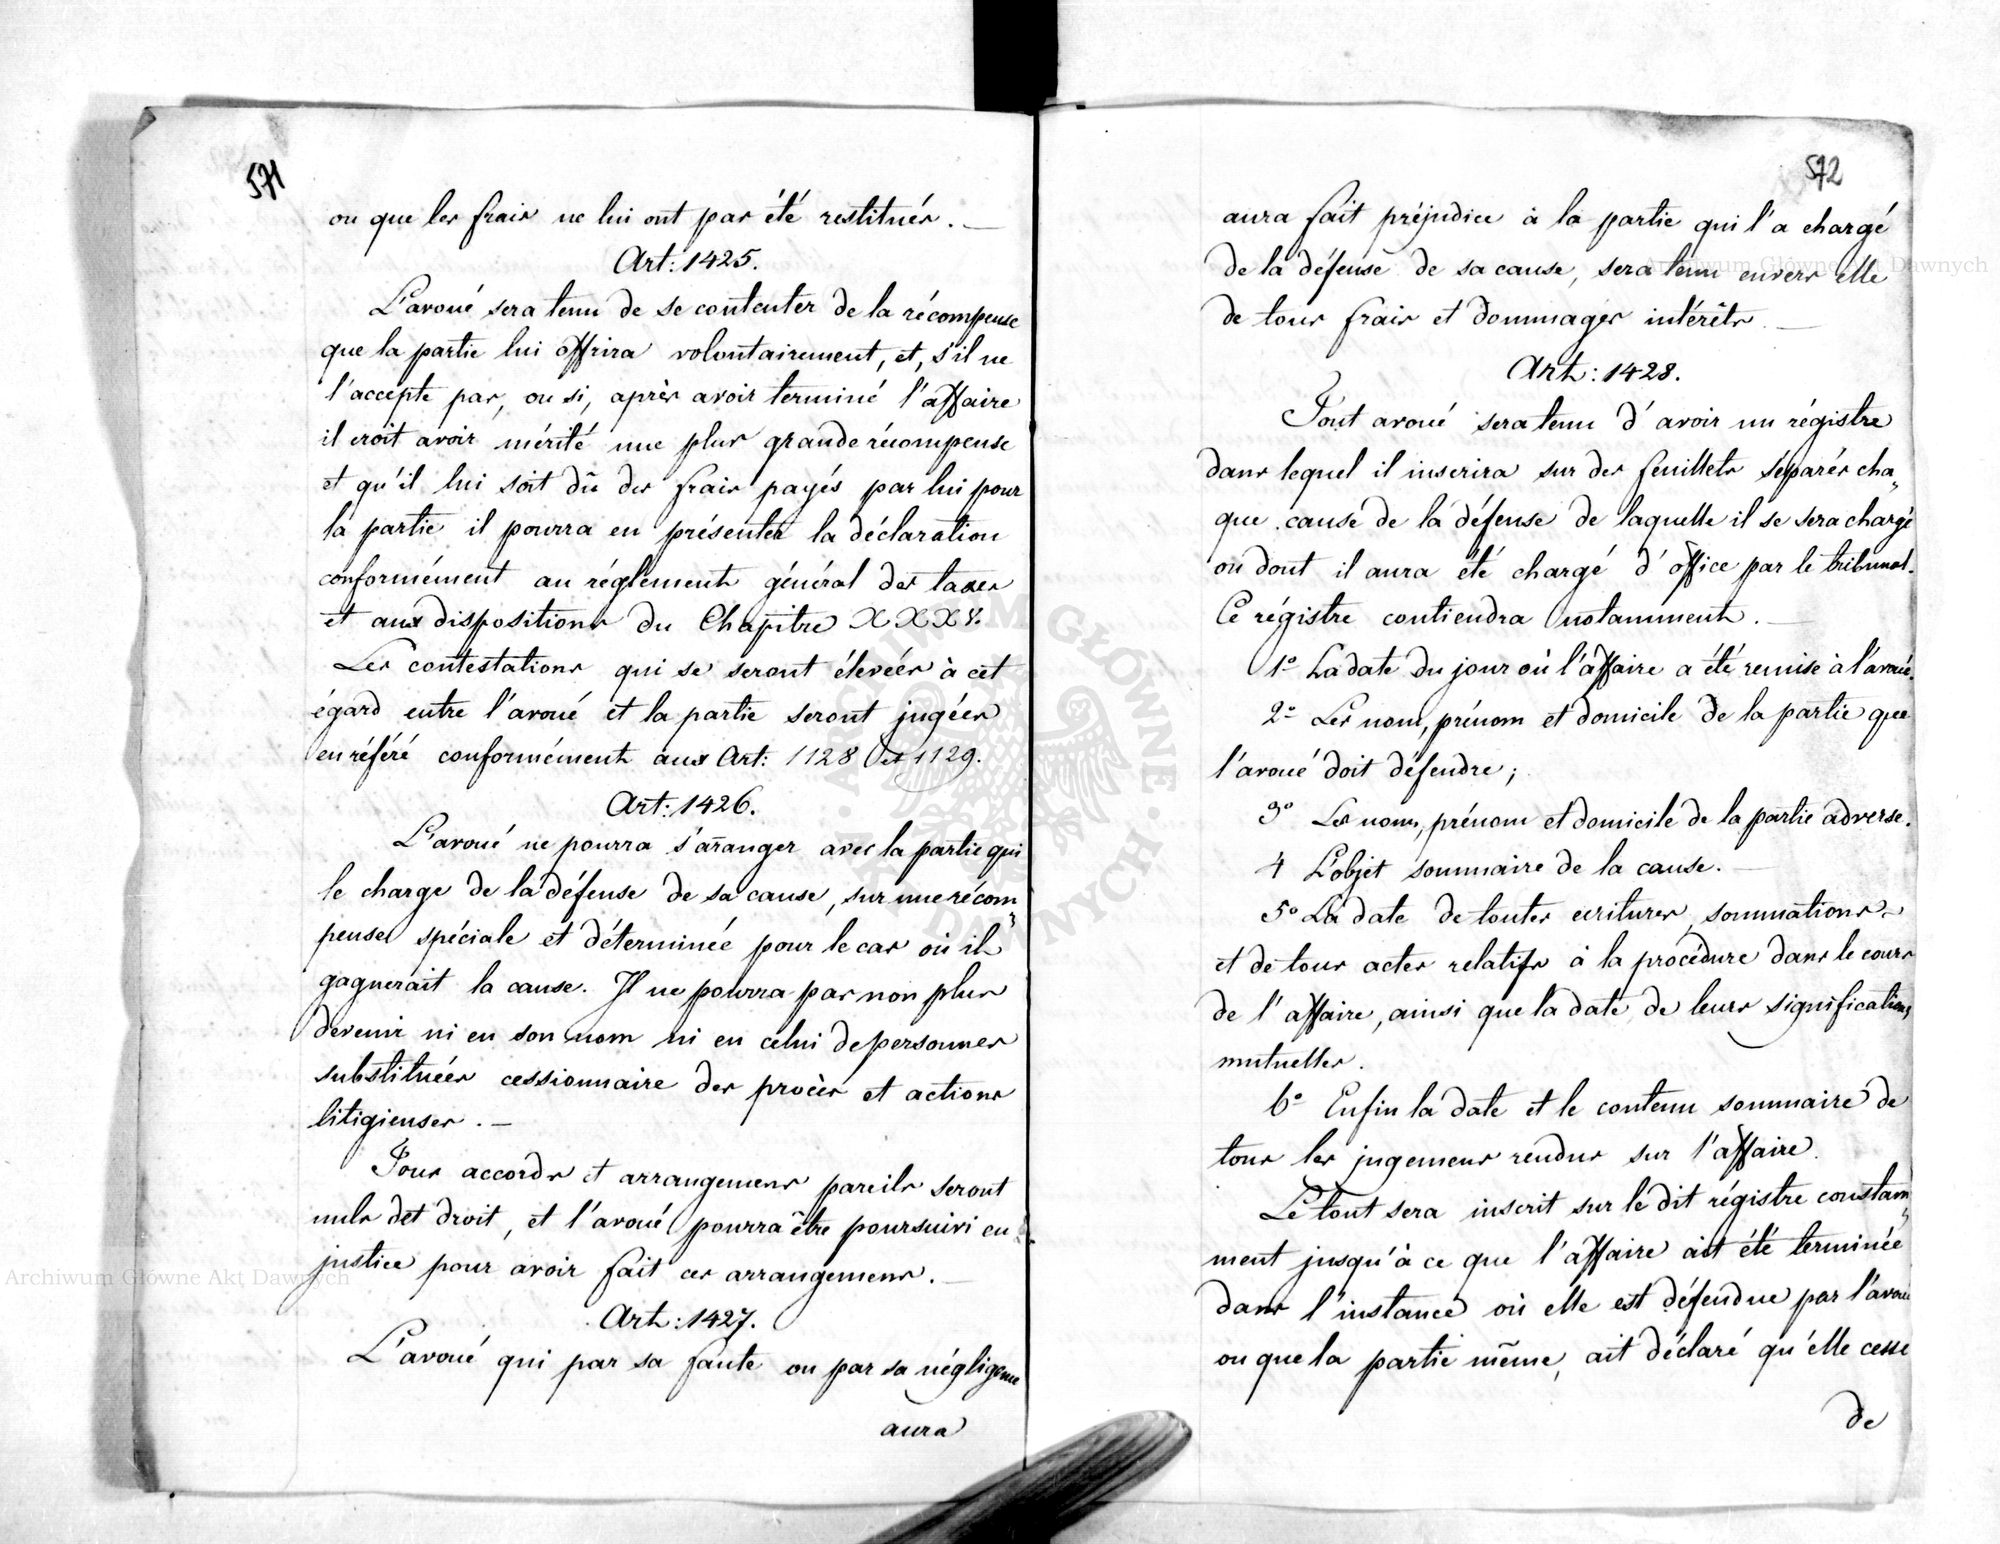 571
ou que les frais ne lui ont pas été restitués. —
Art: 1425.
L'avoué sera tenu de se contenter de la récompense
que la partie lui offrira volontairement, et, s'il ne
l'accepte pas, ou si, après avoir terminé l'affaire
il croit avoir mérité une plus grande récompense
et qu'il lui soit dû des frais payés par lui pour
la partie il pourra en présenter la déclaration
conformément au réglement général des taxes
et aux dispositions du Chapitre XXXV.
Les contestations qui se seront élevées à cet
égard entre l'avoué et la partie seront jugées
en référé conformément aux Art: 1128 et 1129.
Art: 1426.
L'avoué ne pourra s'arranger avec la partie qui
le charge de la défense de sa cause, sur une récom„
pense spéciale et déterminée pour le cas où il
gagnerait la cause. Il ne pourra pas non plus
devenir ni en son nom ni en celui de personnes
substituées cessionnaire des procès et actions
litigieuses. —
Tous accords et arrangemens pareils seront
nuls det droit, et l'avoué pourra être poursuivi en
justice pour avoir fait ces arrangemens. —
Art: 1427.
L'avoué qui par sa faute ou par sa négligence
aura
572
aura fait préjudice à la partie qui l'a chargé
de la défense de sa cause, sera tenu envers elle
de tous frais et dommages intérêts. —
Art: 1428.
Tout avoué sera tenu d'avoir un régistre
dans lequel il inscrira sur des feuillets séparés cha„
que cause de la défense de laquelle il se sera chargé
ou dont il aura été chargé d'office par le tribunal.
Ce régistre contiendra notamment. —
1º La date du jour où l'affaire a été remise à l'avoué.
2º Les nom, prénom et domicile de la partie que
l'avoué doit défendre;
3º Les noms, prénom et domicile de la partie adverse.
4 L'objet sommaire de la cause. —
5º La date de toutes ecritures, sommations
et de tous actes relatifs à la procédure dans le cours
de l'affaire, ainsi que la date de leurs significations
mutuelles.
6º Enfin la date et le contenu sommaire de
tous les jugemens rendus sur l'affaire.
Le tout sera inscrit sur le dit régistre constam„
ment jusqu'à ce que l'affaire ait été terminée
dans l'instance où elle est défendue par l'avoué
ou que la partie même, ait déclaré qu'elle cesse
de
Archiwum Główne Akt Dawnych
Archiwum Główne Akt Dawnych
ARCHIWUM GŁÓWNE AKT DAWNYCH